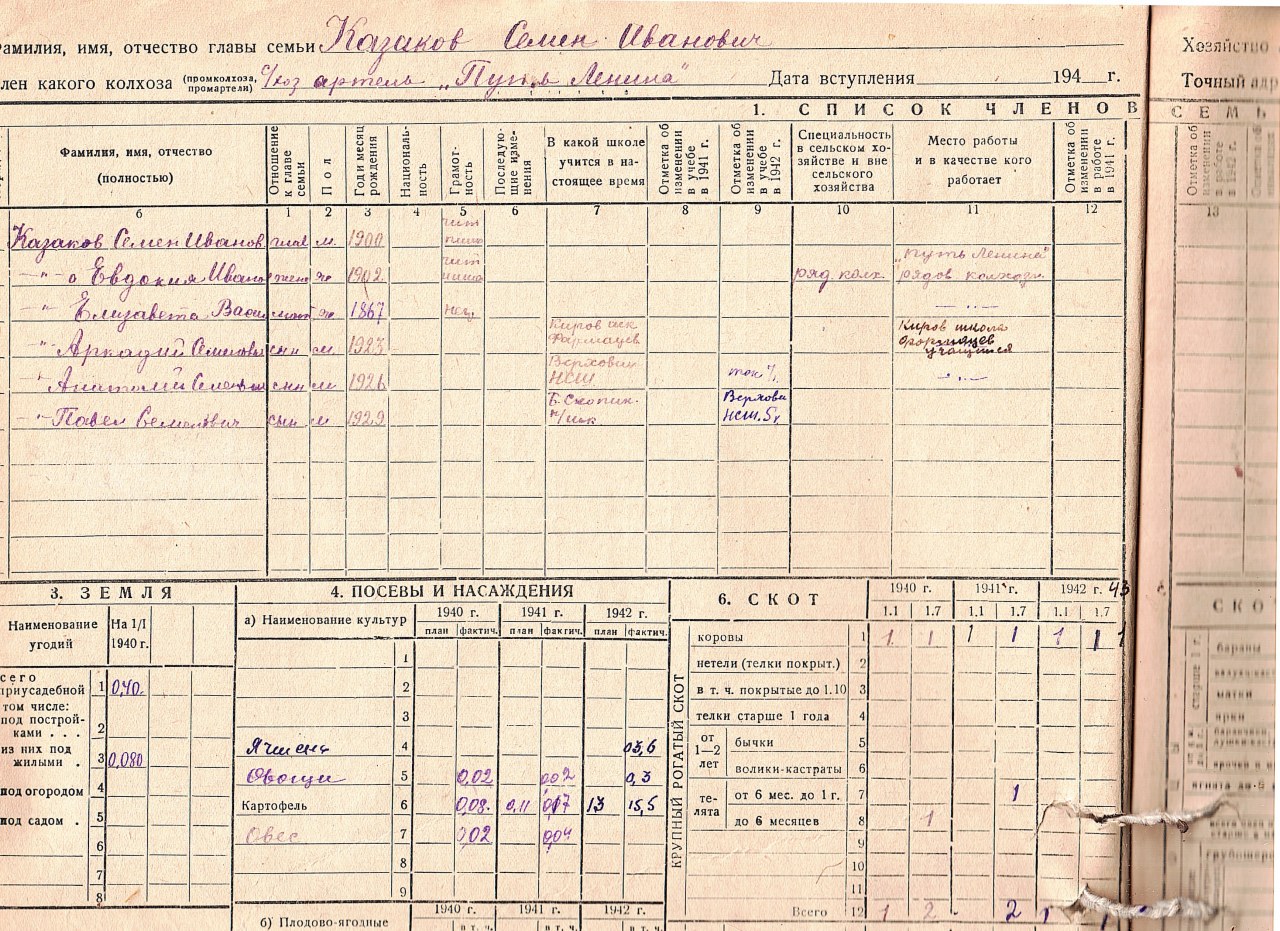 Фамилия, имя, отчество главы семьи Казаков Семен Иванович
лен какого колхоза (промколхоза, промартели) с/хоз артель „Путь Ленина" Дата вступления 194 г.
1. СПИСОК ЧЛЕНОВ
Фамилия, имя, отчество (полностью)
Отношение к главе семьи
Пол
Год и месяц рождения
Националь-ность
Грамот-ность
Последую-щие изме-нения
В какой школе учится в на-стоящее время
Отметка об изменении в учебе в 1941 г.
Отметка об изменении в учебе в 1942 г.
Специальность в сельском хо-зяйстве и вне сельского хозяйства
Место работы и в качестве кого работает
Отметка об изменении в работе в 1941 г.
6 1 2 3 4 5 6 7 8 9 10 11 12
Казаков Семен Иванов. глав м. 1900 чит пиш
-"- Евдокия Ивано жена ж 1902 чит пиш ряд. колх. „Путь Ленина" рядов колхозн.
-"- Елизавета Васи мать ж 1867 нег.
-"- Аркадий Семенови сын м. 1923 Киров шк Фармацев Киров школа фармацев учащийся
-"- Анатолий Семенович сын м 1926 Верховин НСШ
-"- Павел Семенович сын м 1929 Б-Скопин. н/шк Верхови НСШ. 5 г.
3. ЗЕМЛЯ
Наименование угодий
На 1/I 1940 г.
сего приусадебной 1 0,40.
том числе:
под построй-ками . . . 2
из них под жилыми . 3 0,080
под огородом 4
под садом . 5
6
7
8
4. ПОСЕВЫ И НАСАЖДЕНИЯ
а) Наименование культур
1940 г. 1941 г. 1942 г.
план фактич. план фактич. план фактич.
1
2
3
Ячмень 4 03,6
Овощи 5 0,02 0,02 0,3
Картофель 6 0,08. 0,11 0,17 13 15,5
Овес 7 0,02 0,04
8
9
б) Плодово-ягодные
1940 г. 1941 г. 1942 г.
6. СКОТ
1940 г. 1941 г. 1942 г. 43
1.1 1.7 1.1 1.7 1.1 1.7
КРУПНЫЙ РОГАТЫЙ СКОТ
коровы 1 1 1 1 1 1 1 1
нетели (телки покрыт.) 2
в т. ч. покрытые до 1.10 3
телки старше 1 года 4
от 1—2 лет
бычки 5
волики-кастраты 6
те-лята
от 6 мес. до 1 г. 7 1
до 6 месяцев 8 1
9
10
11
Всего 12 1 2 - 2 1
Хозяйство
Точный адр
СЕМЬ
Отметка об изменении в работе в 1942 г.
13
СКО
бараны
матки
ярки